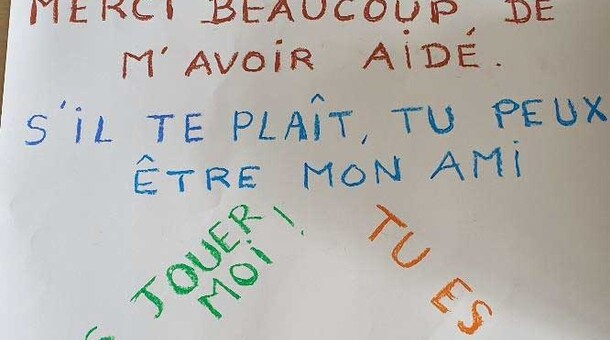 MERCI BEAUCOUP DE
M'AVOIR AIDÉ.
S'IL TE PLAÎT, TU PEUX
ÊTRE MON AMI
JOUER
MOI !
TU ES